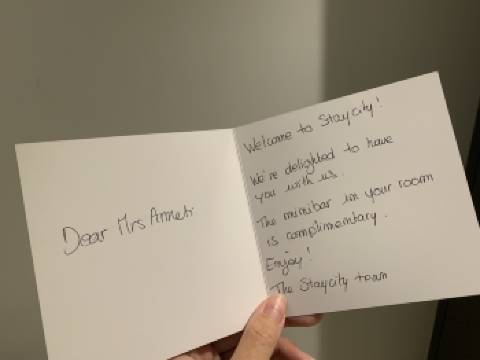 Dear Mrs Annetti
Welcome to Staycity!
We're delighted to have
you with us.
The minibar in your room
is complimentary.
Enjoy!
The Staycity team